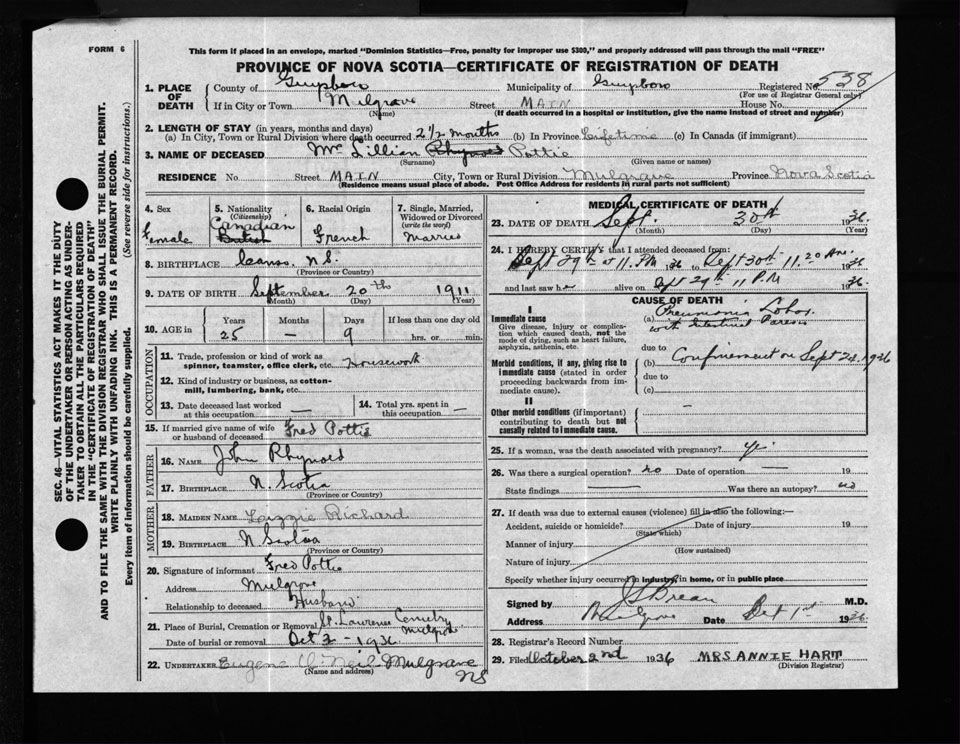 FORM 6
This form if placed in an envelope, marked "Dominion Statistics—Free, penalty for improper use $300," and properly addressed will pass through the mail "FREE"
PROVINCE OF NOVA SCOTIA—CERTIFICATE OF REGISTRATION OF DEATH
1. PLACE OF DEATH County of Guysboro Municipality of Guysboro Registered No. 538
(For use of Registrar General only)
If in City or Town Mulgrave Street MAIN House No.
(Name) (If death occurred in a hospital or institution, give the name instead of street and number)
2. LENGTH OF STAY (in years, months and days)
(a) In City, Town or Rural Division where death occurred 2 1/2 months (b) In Province Lifetime (c) In Canada (if immigrant)
3. NAME OF DECEASED Mrs Lillian Rhynold Pottie
(Surname) (Given name or names)
RESIDENCE No Street MAIN City, Town or Rural Division Mulgrave Province Nova Scotia
(Residence means usual place of abode. Post Office Address for residents in rural parts not sufficient)
4. Sex Female
5. Nationality (Citizenship) Canadian British
6. Racial Origin French
7. Single, Married, Widowed or Divorced (write the word) Married
8. BIRTHPLACE Canso, N.S.
(Province or Country)
9. DATE OF BIRTH September 20th 1911
(Month) (Day) (Year)
10. AGE in Years Months Days If less than one day old
25 — 9 hrs. or min.
OCCUPATION
11. Trade, profession or kind of work as spinner, teamster, office clerk, etc. Housework
12. Kind of industry or business, as cotton-mill, lumbering, bank, etc.
13. Date deceased last worked at this occupation —
14. Total yrs. spent in this occupation —
15. If married give name of wife or husband of deceased Fred Pottie
FATHER
16. NAME John Rhynold
17. BIRTHPLACE N. Scotia
(Province or Country)
MOTHER
18. MAIDEN NAME Lizzie Richard
19. BIRTHPLACE N Scotia
(Province or Country)
20. Signature of informant Fred Pottie
Address Mulgrave
Relationship to deceased Husband
21. Place of Burial, Cremation or Removal St. Lawrence Cemetery Mulgrave
Date of burial or removal Oct 2 - 1936
22. UNDERTAKER Eugene O'Neil Mulgrave NS
(Name and address)
MEDICAL CERTIFICATE OF DEATH
23. DATE OF DEATH Sept. 30th 1936.
(Month) (Day) (Year)
24. I HEREBY CERTIFY that I attended deceased from:
Sept 29th at 11. PM 1936 to Sept 30th 11.20 Am. 1936
and last saw her alive on Sept 29th 11 P.M 1936.
CAUSE OF DEATH
I
Immediate cause
Give disease, injury or complication which caused death, not the mode of dying, such as heart failure, asphyxia, asthenia, etc.
(a) Pneumonia Lobar
with Intestinal Paresis
due to
Morbid conditions, if any, giving rise to immediate cause (stated in order proceeding backwards from immediate cause).
(b) Confinement on Sept 24. 1936
due to
(c)
II
Other morbid conditions (if important) contributing to death but not causally related to immediate cause. —
25. If a woman, was the death associated with pregnancy? yes
26. Was there a surgical operation? no Date of operation — 19
State findings — Was there an autopsy? no
27. If death was due to external causes (violence) fill in also the following:—
Accident, suicide or homicide? Date of injury 19
(State which)
Manner of injury
(How sustained)
Nature of injury
Specify whether injury occurred in industry, in home, or in public place
Signed by M.D.
Address Mulgrave Date Oct 1st 1936.
28. Registrar's Record Number
29. Filed October 2nd 1936 MRS ANNIE HART
(Division Registrar)
SEC. 46—VITAL STATISTICS ACT MAKES IT THE DUTY
OF THE UNDERTAKER OR PERSON ACTING AS UNDER-
TAKER TO OBTAIN ALL THE PARTICULARS REQUIRED
IN THE "CERTIFICATE OF REGISTRATION OF DEATH"
AND TO FILE THE SAME WITH THE DIVISION REGISTRAR WHO SHALL ISSUE THE BURIAL PERMIT.
WRITE PLAINLY WITH UNFADING INK. THIS IS A PERMANENT RECORD.
Every item of information should be carefully supplied. (See reverse side for instructions.)